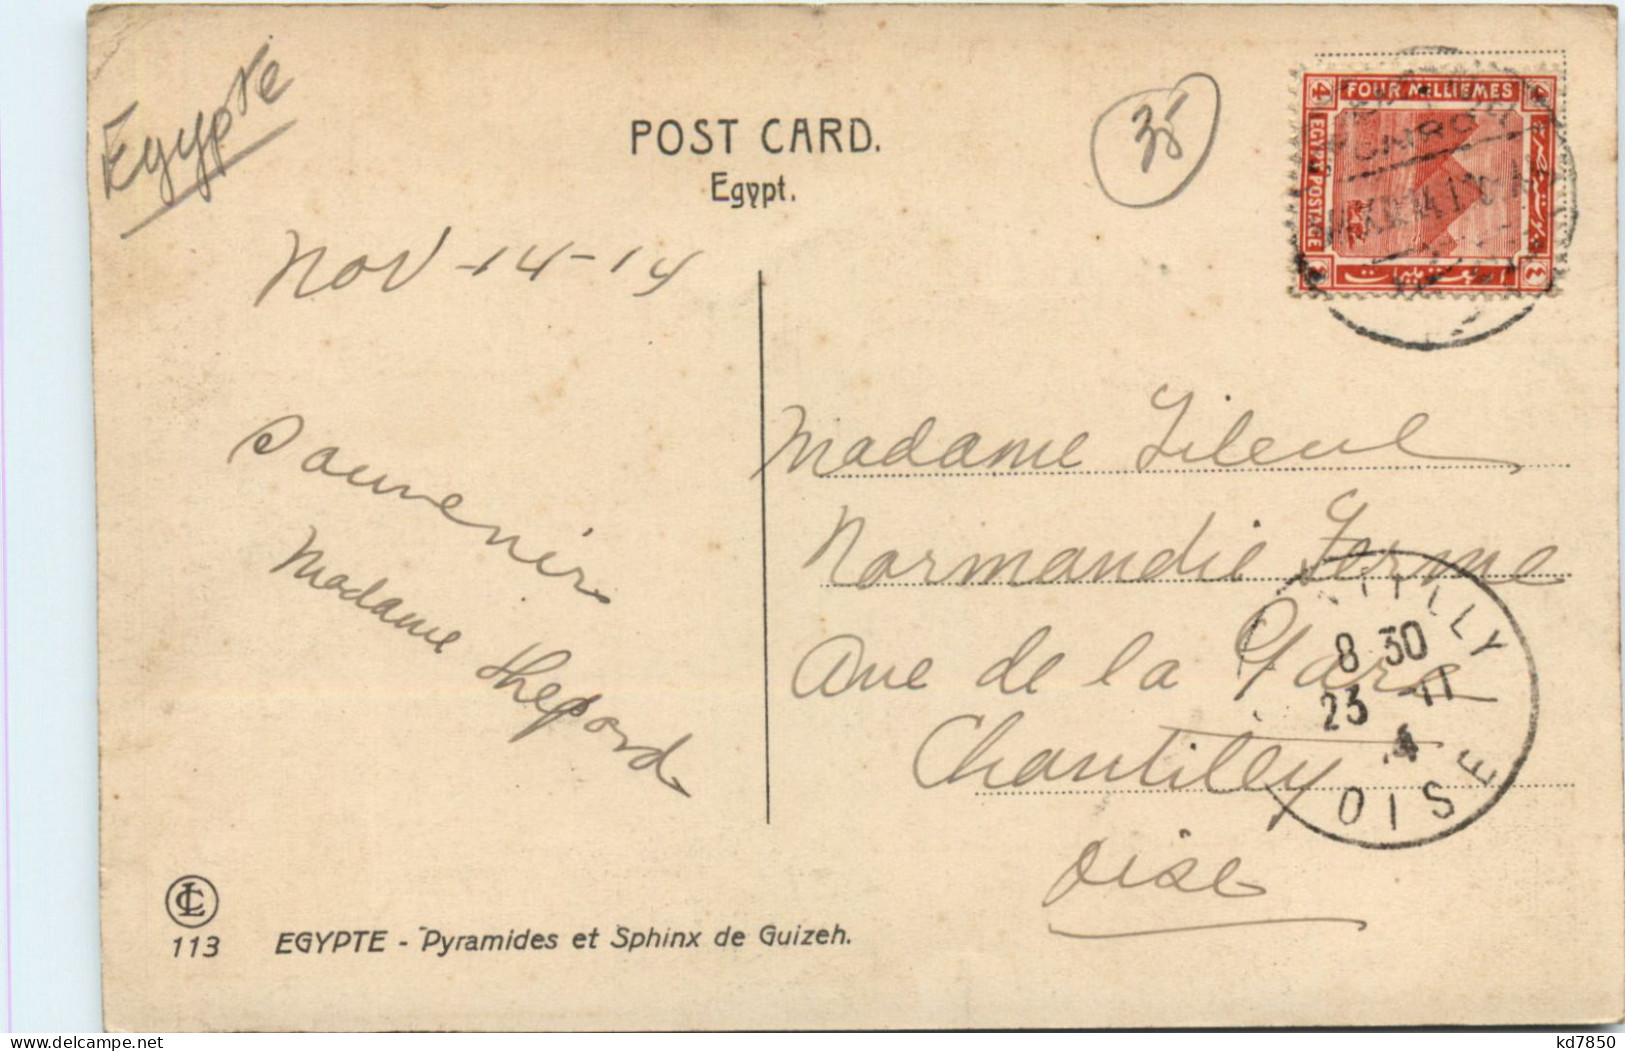 Egypte
POST CARD.
Egypt.
35
FOUR MILLIEMES
EGYPT POSTAGE
4
4
CAIRO
Nov - 14 - 14
Souvenir
Madame Shepord
Madame Tileul
Normandie Ferme
Ave de la Gare
Chantilly
Oise
TILLY
8 30
23 - 11
4
OISE
LC
113
EGYPTE - Pyramides et Sphinx de Guizeh.
kd7850